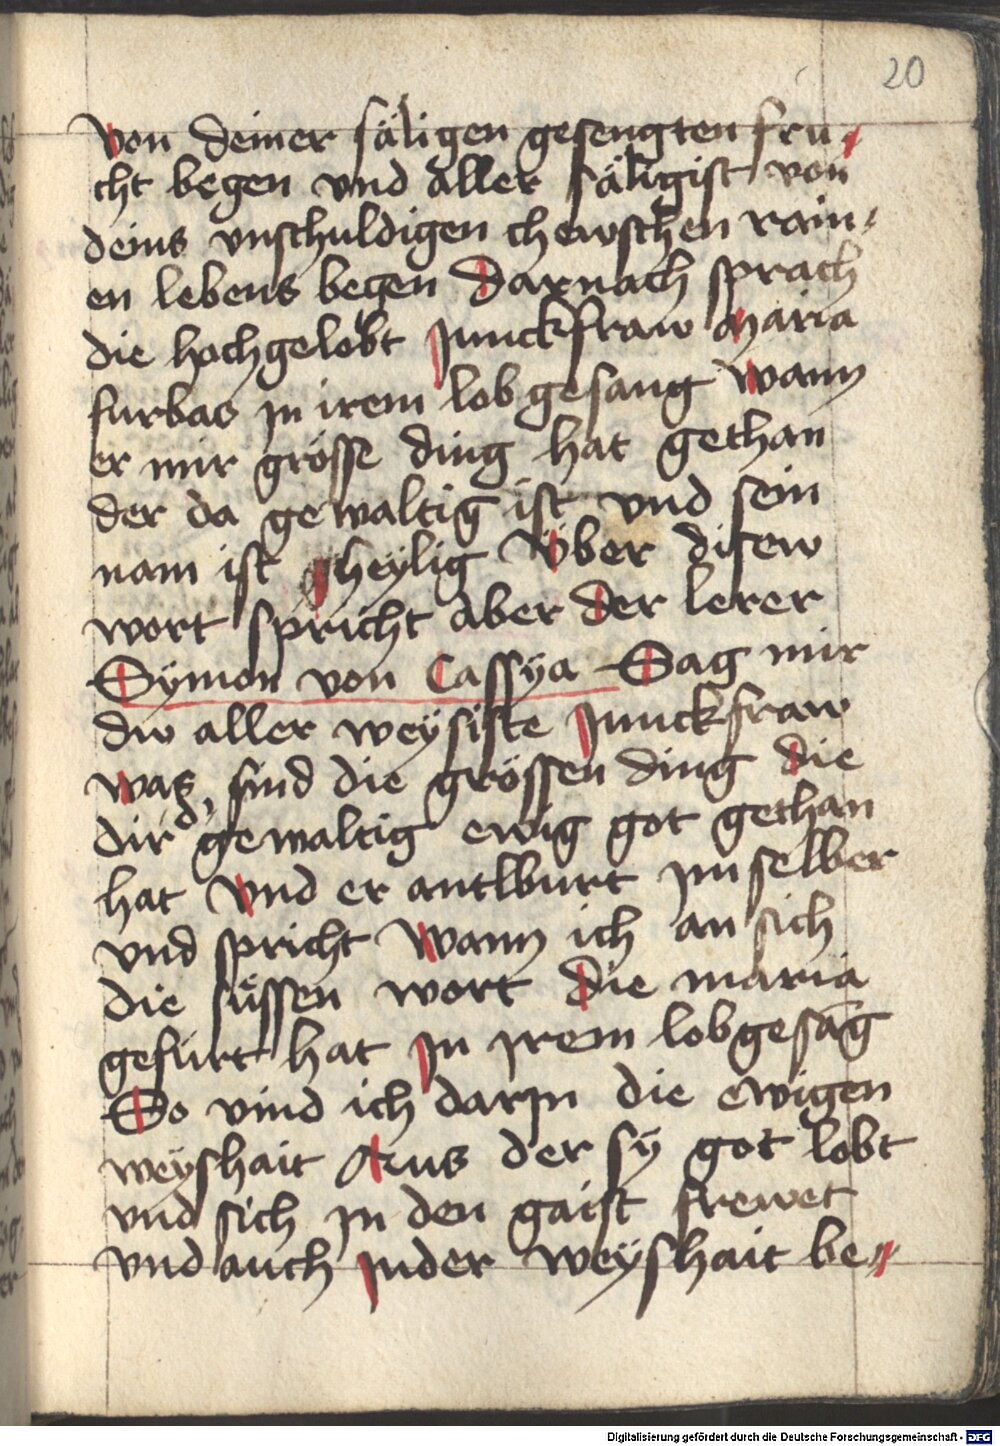 20
von deiner säligen gesengten fru-
cht begen vnd aller säligist von
deins vnschuldigen chewschen rain-
en lebens begen Darnach sprach
die hochgelobt Junckfraw maria
furbas jn irem lobgesang Wann
er mir grösse ding hat gethan
der da gewaltig ist vnd sein
nam ist heylig Vber disew
wort spricht aber der lerer
Symon von Cassya Sag mir
dw aller weysiste Junckfraw
was sind die grössen ding die
dir d' gewaltig ewig got gethan
hat Vnd er antlburt jm selber
vnd spricht Wann ich an sich
die süssen wort die maria
gefürt hat Jn jrem lobgesāg
So vind ich darjn die ewigen
weyshait Aus der sy got lobt
vnd sich jn den gaist frewet
vnd auch jnder weyshait be-
Digitalisierung gefördert durch die Deutsche Forschungsgemeinschaft - DFG